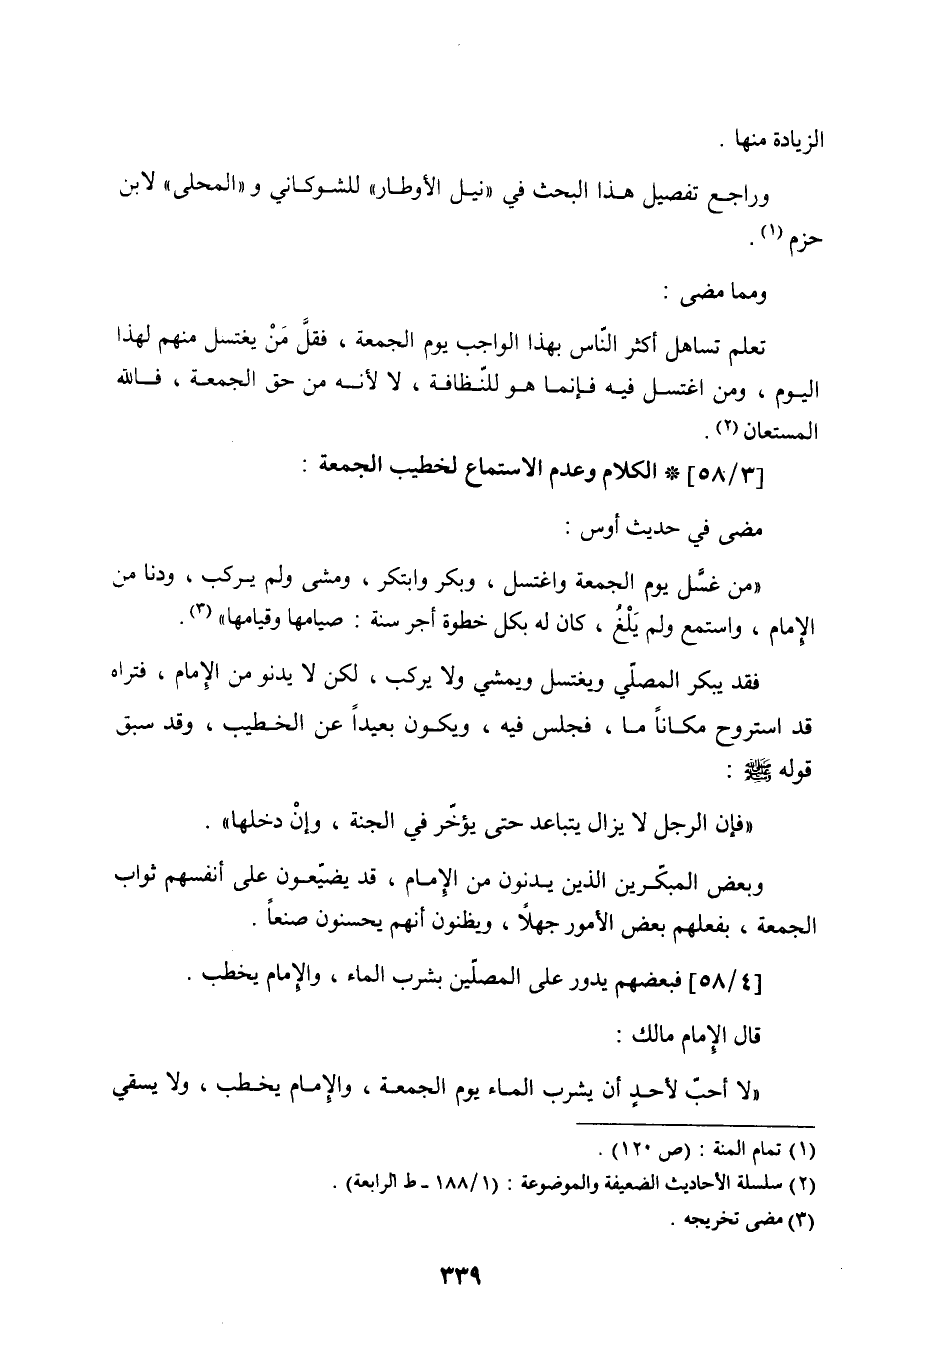 الزيادة منها .
وراجع تفصيل هذا البحث في «نيل الأوطار» للشوكاني و «المحلى» لابن
حزم (١) .
ومما مضى :
تعلم تساهل أكثر النّاس بهذا الواجب يوم الجمعة ، فقلَّ مَنْ يغتسل منهم لهذا
اليوم ، ومن اغتسل فيه فإنما هو للنّظافة ، لا لأنه من حق الجمعة ، فالله
المستعان (٢) .
[٥٨/٣] * الكلام وعدم الاستماع لخطيب الجمعة :
مضى في حديث أوس :
«من غسَّل يوم الجمعة واغتسل ، وبكر وابتكر ، ومشى ولم يركب ، ودنا من
الإمام ، واستمع ولم يَلْغُ ، كان له بكل خطوة أجر سنة : صيامها وقيامها» (٣) .
فقد يبكر المصلّي ويغتسل ويمشي ولا يركب ، لكن لا يدنو من الإمام ، فتراه
قد استروح مكاناً ما ، فجلس فيه ، ويكون بعيداً عن الخطيب ، وقد سبق
قوله ﷺ :
«فإن الرجل لا يزال يتباعد حتى يؤخّر في الجنة ، وإنْ دخلها» .
وبعض المبكّرين الذين يدنون من الإمام ، قد يضيّعون على أنفسهم ثواب
الجمعة ، بفعلهم بعض الأمور جهلًا ، ويظنون أنهم يحسنون صنعاً .
[٥٨/٤] فبعضهم يدور على المصلّين بشرب الماء ، والإمام يخطب .
قال الإمام مالك :
«لا أحبّ لأحدٍ أن يشرب الماء يوم الجمعة ، والإمام يخطب ، ولا يسقي
(١) تمام المنة : (ص ١٢٠) .
(٢) سلسلة الأحاديث الضعيفة والموضوعة : (١/ ١٨٨ ـ ط الرابعة) .
(٣) مضى تخريجه .
٣٣٩